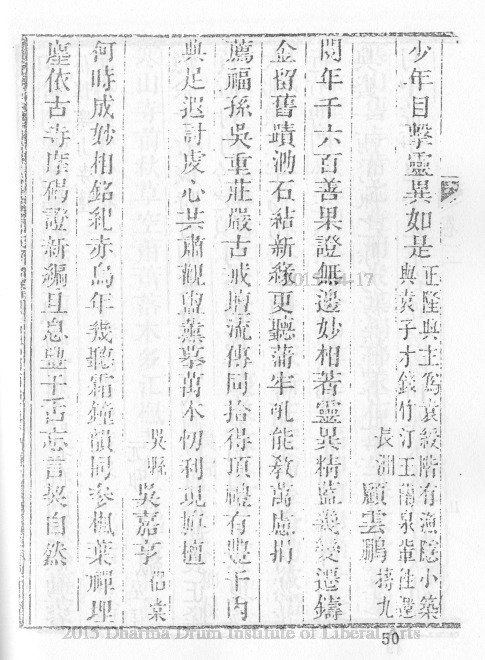 少年目擊靈異如是正隆與主爲袁綬階有漁隱小築
與袁子才錢竹汀王蘭泉輩往還
長洲 顧雲鵬 蓴九
閱年千六百善果證無邊妙相著靈異精藍幾變遷鑄
金留舊蹟泐石結新緣更聽蒲牢吼能教萬慮捐
薦福孫吳重莊嚴古戒壇流傳同拾得頂禮有豐干內
典足遐討虔心共肅觀盥薰摹萬本忉利現旃檀
吳縣 吳嘉亨 伯葉
何時成妙相銘紀赤烏年幾聽霜鐘韻同參楓葉禪埋
塵依古寺摩碣證新編且息豐干舌忘言契自然
2015-04-17
50
2015 Dharma Drum Institute of Liberal Arts